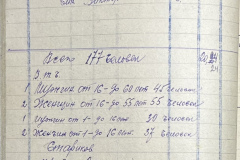 Всего 177 человек
В т.ч.
1 Мужчин от 16-до 60 лет 45 человек
2 Женщин от 16-до 55 лет 55 человек
1 Мужчин от 1-до 16 лет 38 человек
2 Женщин от 1-до 16 лет. 37 человек
Стариков